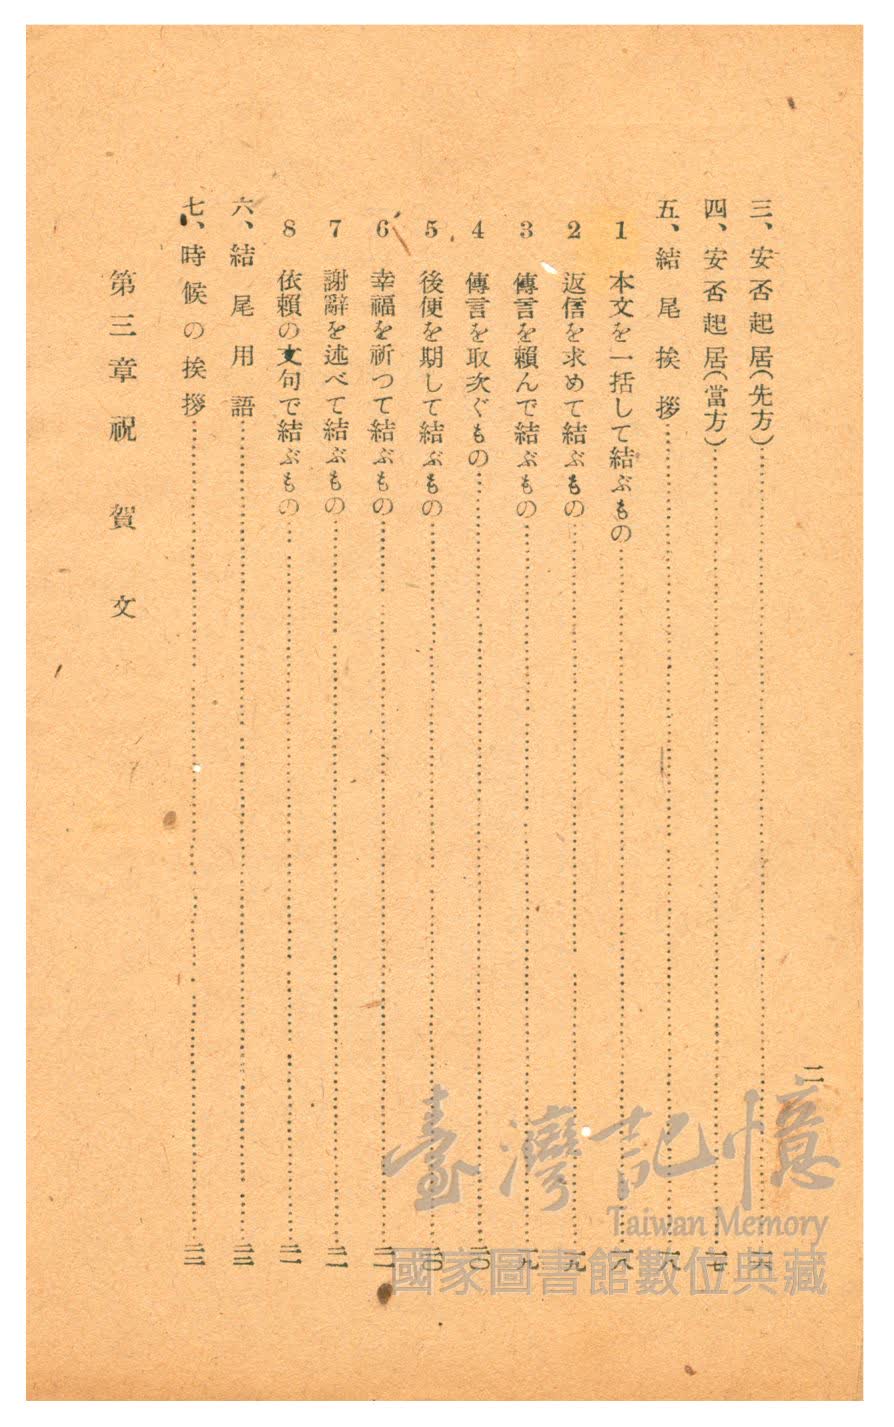 二
三、安否起居(先方)……一六
四、安否起居(當方)……一七
五、結尾挨拶……一八
1 本文を一括して結ぶもの……一八
2 返信を求めて結ぶもの……一九
3 傳言を賴んで結ぶもの……一九
4 傳言を取次ぐもの……二〇
5 後便を期して結ぶもの……二〇
6 幸福を祈つて結ぶもの……二一
7 謝辭を述べて結ぶもの……
8 依賴の文句で結ぶもの……
六、結尾用語……
七、時候の挨拶……
第三章 祝賀文
臺灣記憶
Taiwan Memory
國家圖書館數位典藏